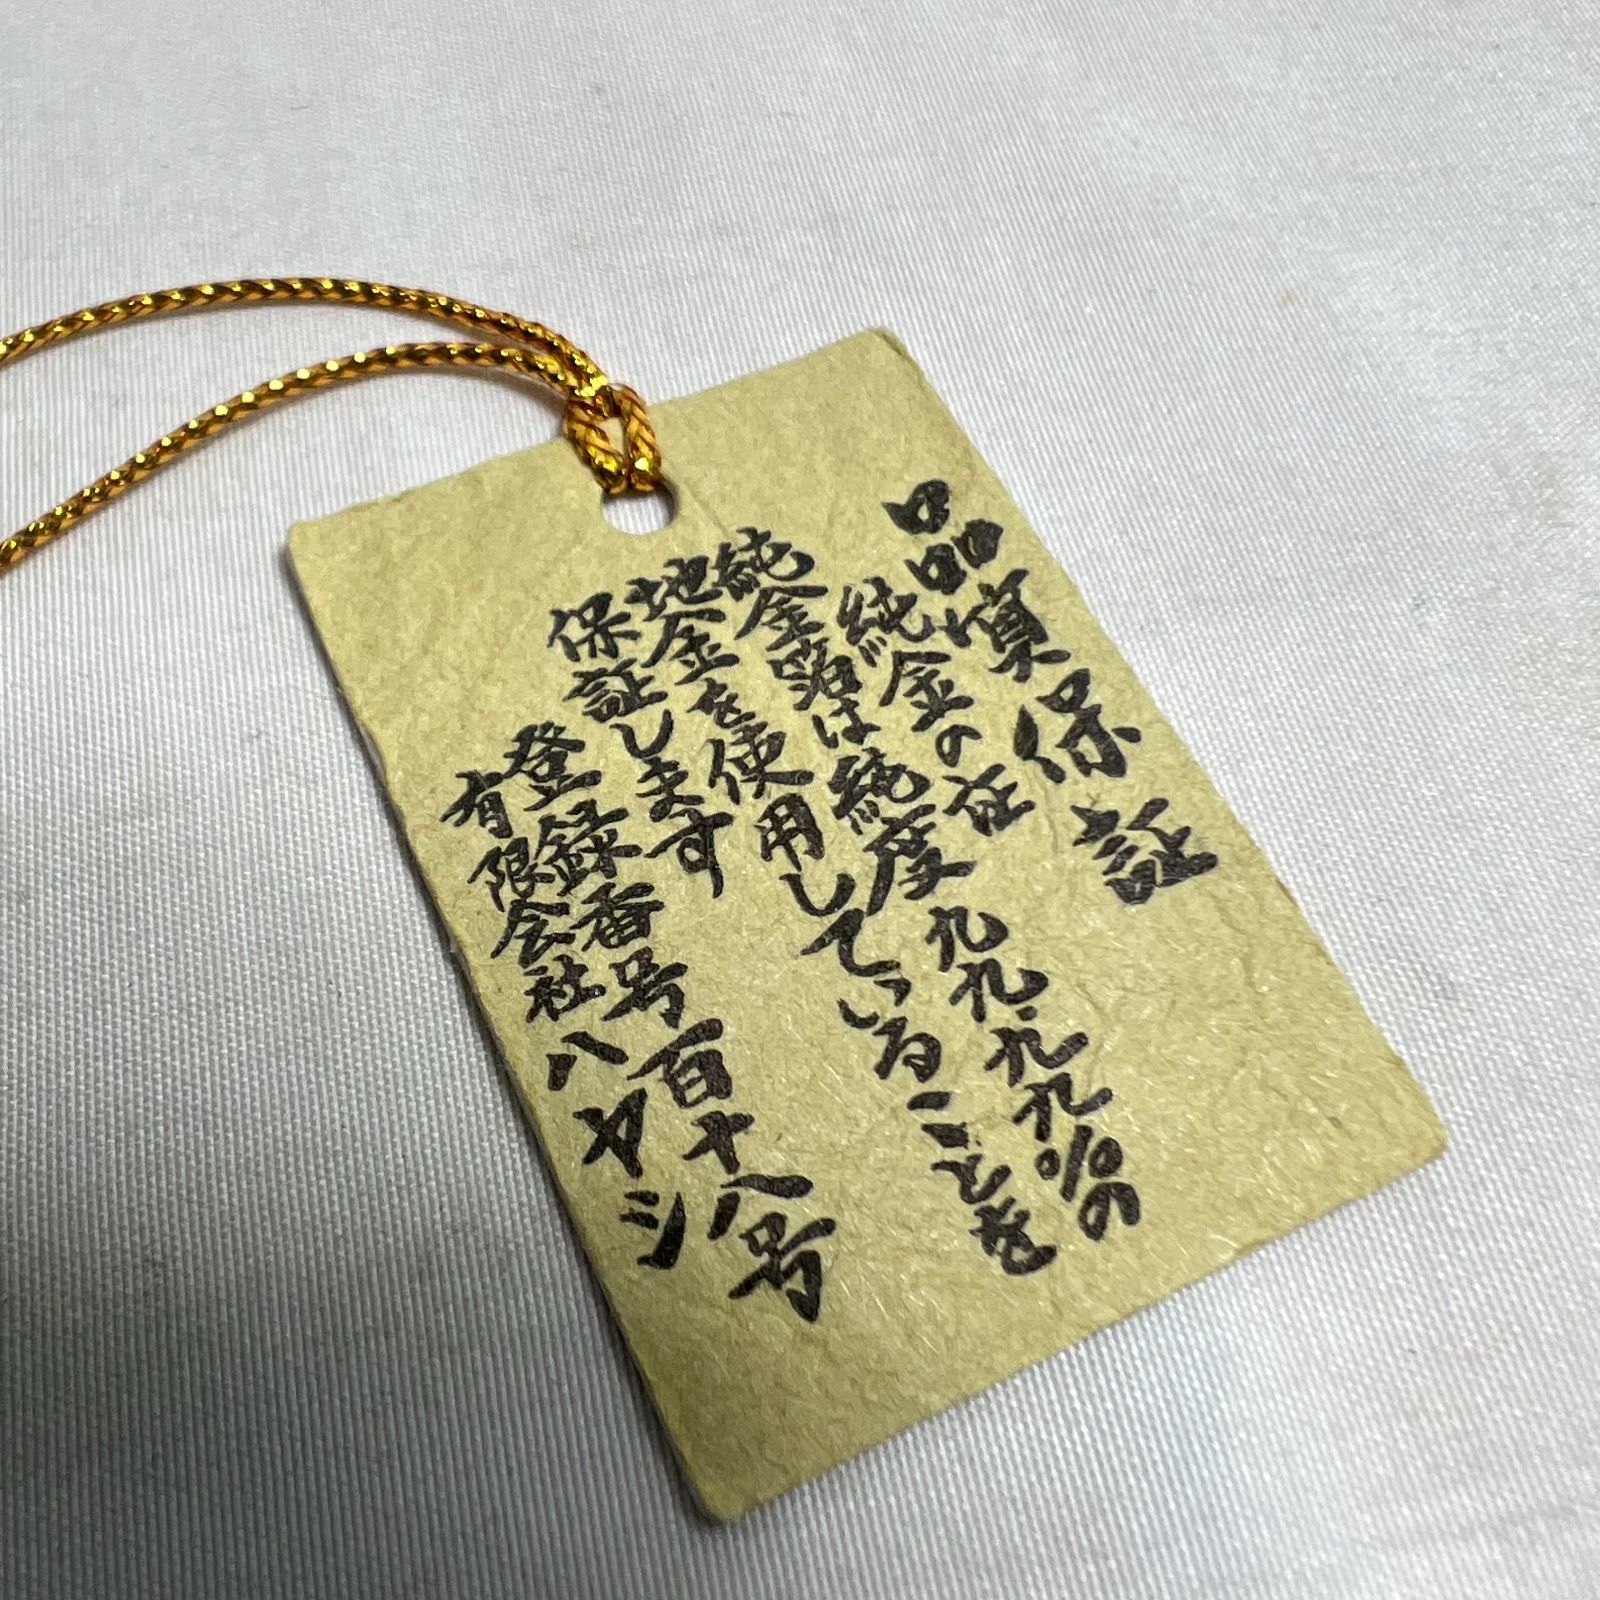 品質保証
純金の証
純金箔は純度九九・九九%の
地金を使用していることを
保証します
登録番号百十八号
有限会社ハタシ